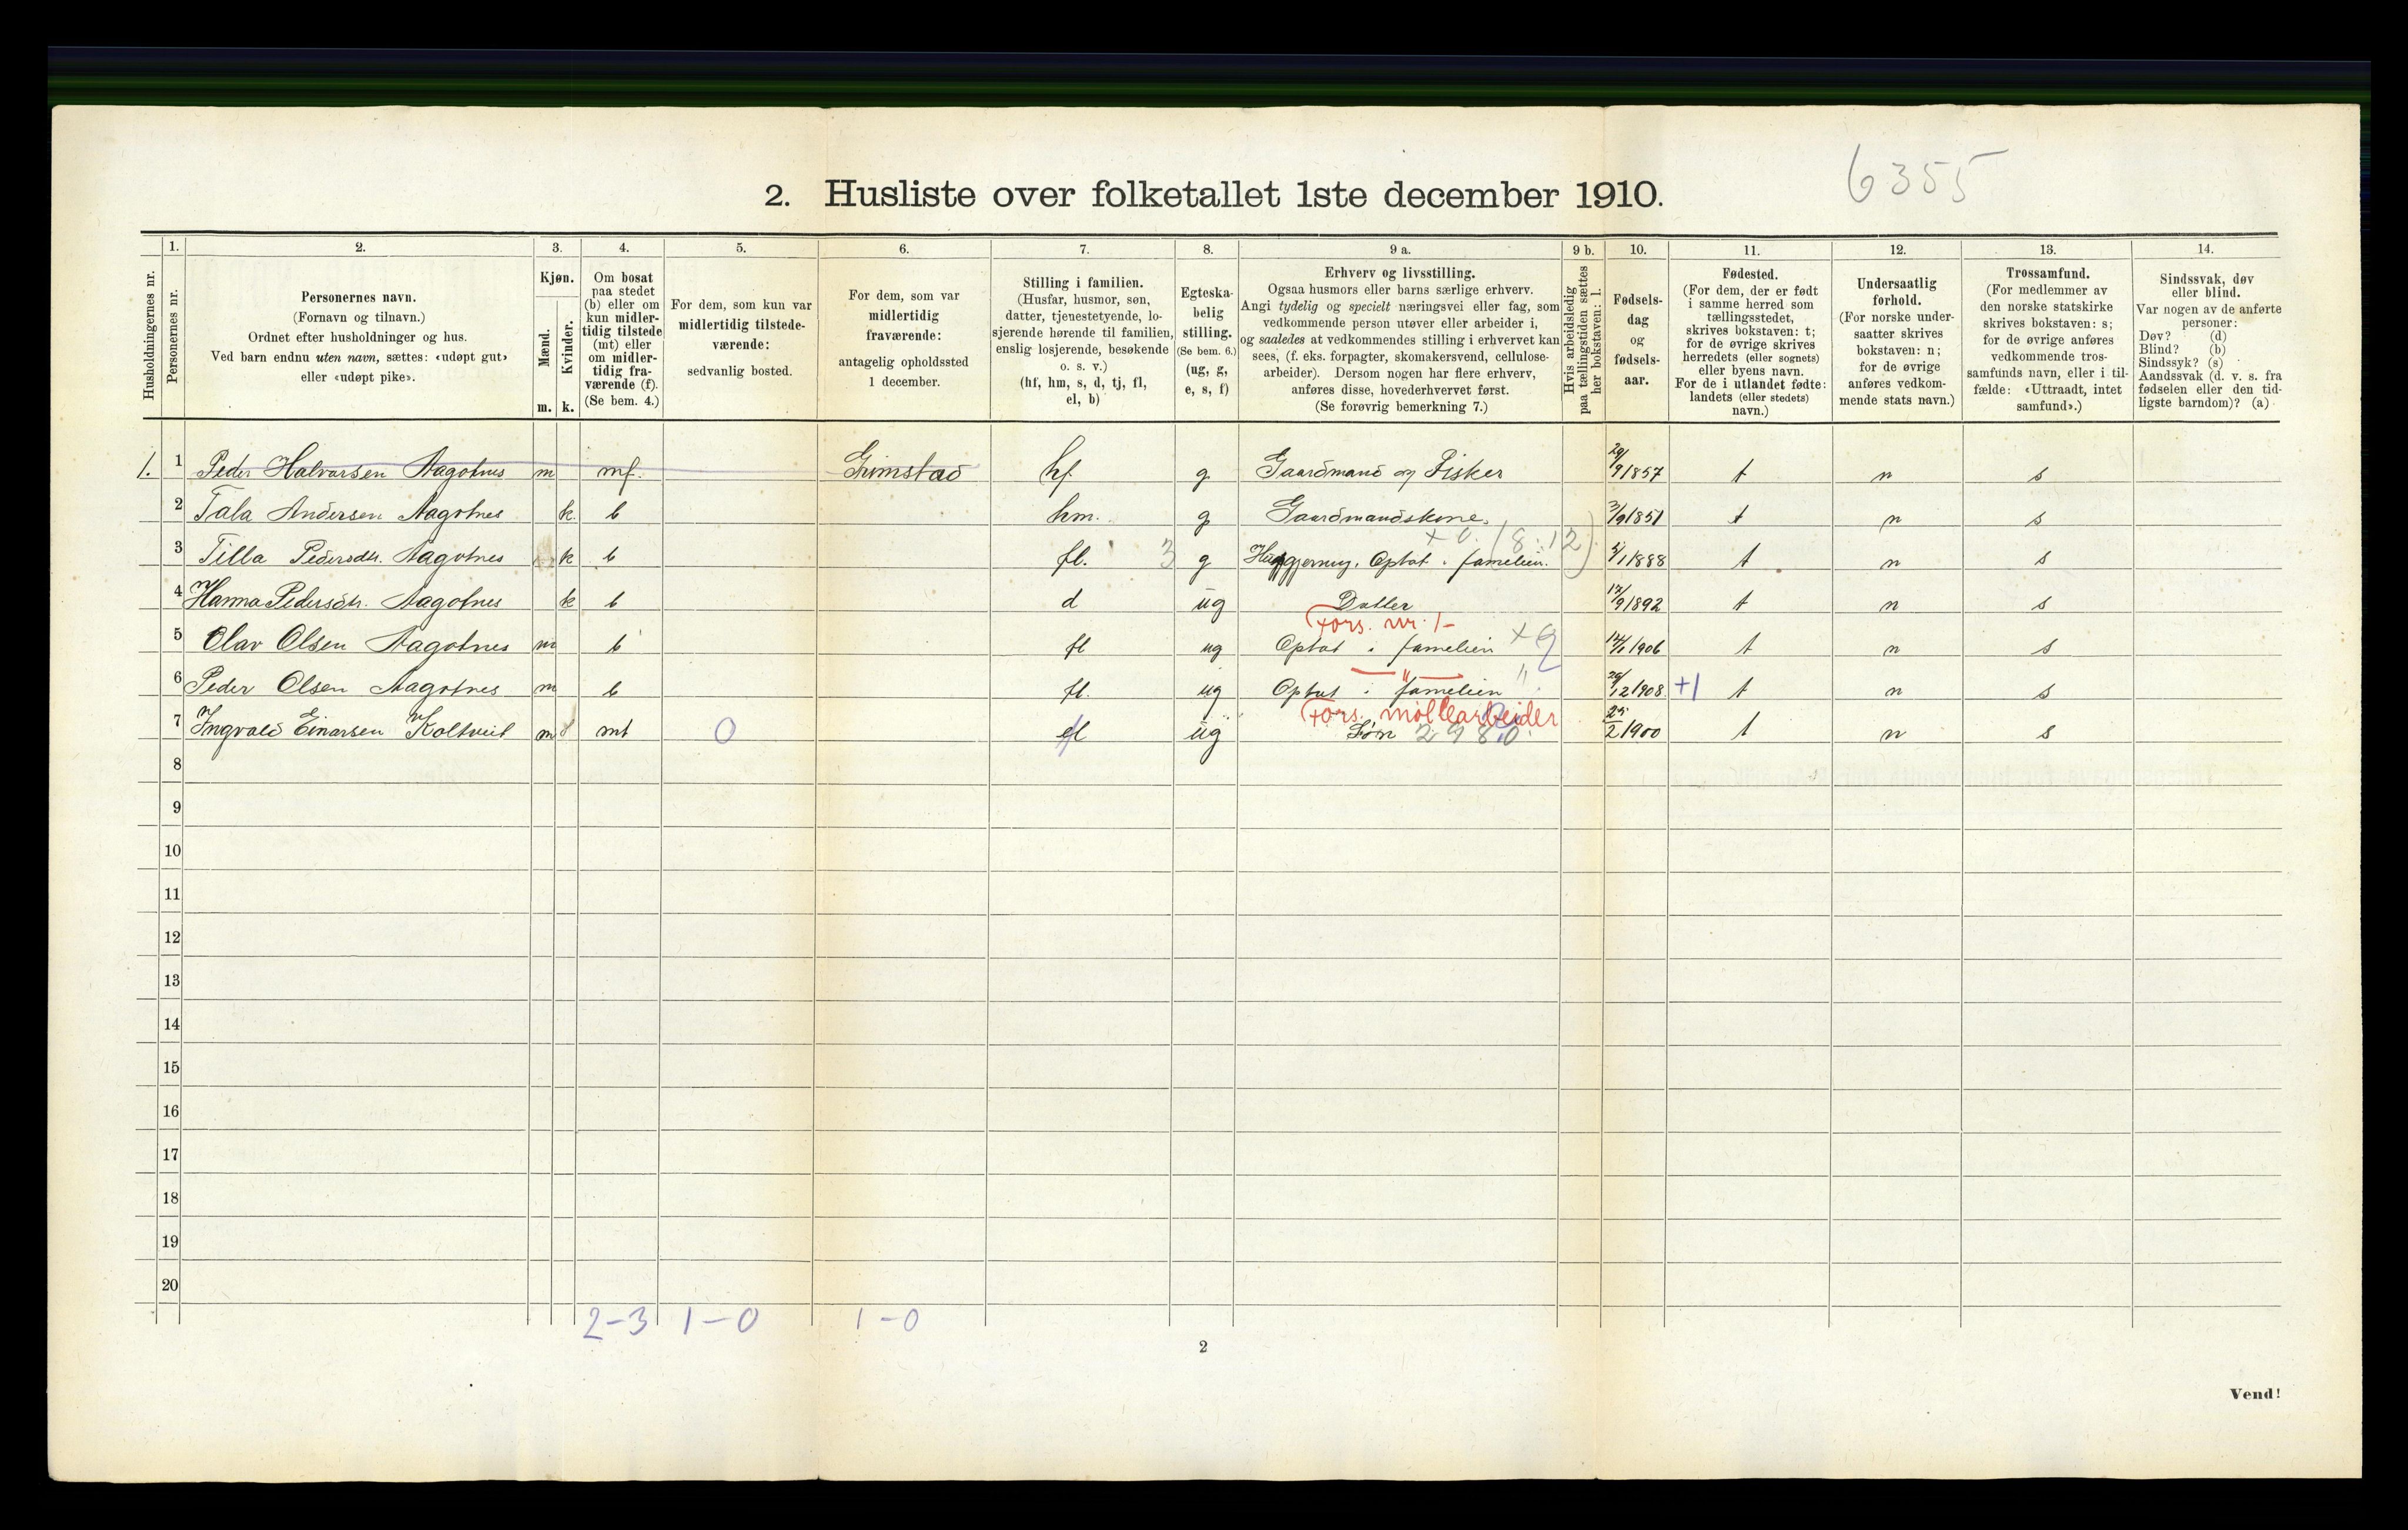 6355
2. Husliste over folketallet 1ste december 1910.
Husholdningernes nr.
1.
Personernes nr.
2.
Personernes navn.
(Fornavn og tilnavn.)
Ordnet efter husholdninger og hus.
Ved barn endnu uten navn, sættes: «udøpt gut»
eller «udøpt pike».
3.
Kjøn.
Mænd.
Kvinder.
m. k.
4.
Om bosat
paa stedet
(b) eller om
kun midler-
tidig tilstede
(mt) eller
om midler-
tidig fra-
værende (f).
(Se bem. 4.)
5.
For dem, som kun var
midlertidig tilstede-
værende:
sedvanlig bosted.
6.
For dem, som var
midlertidig
fraværende:
antagelig opholdssted
1 december.
7.
Stilling i familien.
(Husfar, husmor, søn,
datter, tjenestetyende, lo-
sjerende hørende til familien,
enslig losjerende, besøkende
o. s. v.)
(hf, hm, s, d, tj, fl,
el, b)
8.
Egteska-
belig
stilling.
(Se bem. 6.)
(ug, g,
e, s, f)
9 a.
Erhverv og livsstilling.
Ogsaa husmors eller barns særlige erhverv.
Angi tydelig og specielt næringsvei eller fag, som
vedkommende person utøver eller arbeider i,
og saaledes at vedkommendes stilling i erhvervet kan
sees, (f. eks. forpagter, skomakersvend, cellulose-
arbeider). Dersom nogen har flere erhverv,
anføres disse, hovederhvervet først.
(Se forøvrig bemerkning 7.)
9 b.
Hvis arbeidsledig
paa tællingstiden sættes
her bokstaven: l.
10.
Fødsels-
dag
og
fødsels-
aar.
11.
Fødested.
(For dem, der er født
i samme herred som
tællingsstedet,
skrives bokstaven: t;
for de øvrige skrives
herredets (eller sognets)
eller byens navn.
For de i utlandet fødte:
landets (eller stedets)
navn.)
12.
Undersaatlig
forhold.
(For norske under-
saatter skrives
bokstaven: n;
for de øvrige
anføres vedkom-
mende stats navn.)
13.
Trossamfund.
(For medlemmer av
den norske statskirke
skrives bokstaven: s;
for de øvrige anføres
vedkommende tros-
samfunds navn, eller i til-
fælde: «Uttraadt, intet
samfund».)
14.
Sindssvak, døv
eller blind.
Var nogen av de anførte
personer:
Døv? (d)
Blind? (b)
Sindssyk? (s)
Aandssvak (d. v. s. fra
fødselen eller den tid-
ligste barndom)? (a)
1. 1 Peder Halvarsen Aagotnes m mf. Grimstad hf. g Gaardmand og Fisker 29/9 1857 t n s
2 Tala Andersen Aagotnes k b hm. g Gaardmandskone. 3/9 1851 t n s
+ 0. (8:12)
3 Tilla Pedersdtr. Aagotnes k b fl. 3 g Husgjerning. Optat i famelien. 5/1 1888 t n s
4 Hanna Pedersdtr. Aagotnes k b d ug Datter 17/9 1892 t n s
Fors. nr. 1-
5 Olav Olsen Aagotnes m b fl ug Optat i famelien + 2 14/1 1906 t n s
— " — "
6 Peder Olsen Aagotnes m b fl. ug Optat i famelien 29/12 1908 +1 t n s
Fors. møllearbeider
7 Ingvald Einarsen Koltveit m mt 0 el ug Søn 2980. 25/2 1900 t n s
8
9
10
11
12
13
14
15
16
17
18
19
20
2-3 1-0 1-0
2
Vend!